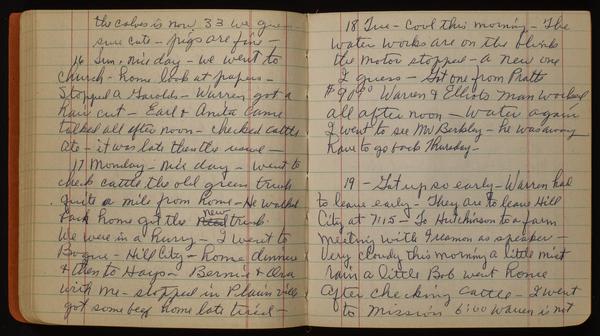 the calves is now 33 we guess
sure cute - pigs are fine -
16 Sun. nice day - we went to
church - home look at papers -
Stopped a Garolds - Warren got a
hair cut - Earl & Anita came
talked all after noon - checked cattle
ate - it was late than the usual -
17 Monday - nice day - went to
check cattle the old green truck
quite a mile from home - He walked
back home got the new truck.
We were in a hurry - I went to
Bogue - Hill City - home dinner
& then to Hays - Bernie & Ora
with me - stopped in Plainville
got some beef home late tired -
18 Tue - Cool this morning - The
water works are on the blink
the motor stopped - a new one
I guess - Got one from Pratt
$90.00 Warren & Elliots man worked
all after noon - water again
I went to see Mr Berkley - he was away
have to go back Thursday -
19 - Got up so early - Warren had
to leave early - They are to leave Hill
City at 7:15 - To Hutchinson to a farm
meeting with Freeman as speaker -
Very cloudy this morning a little mist
rain a little Bob went home
after checking cattle - I went
to Mission 6:00 Warren is not